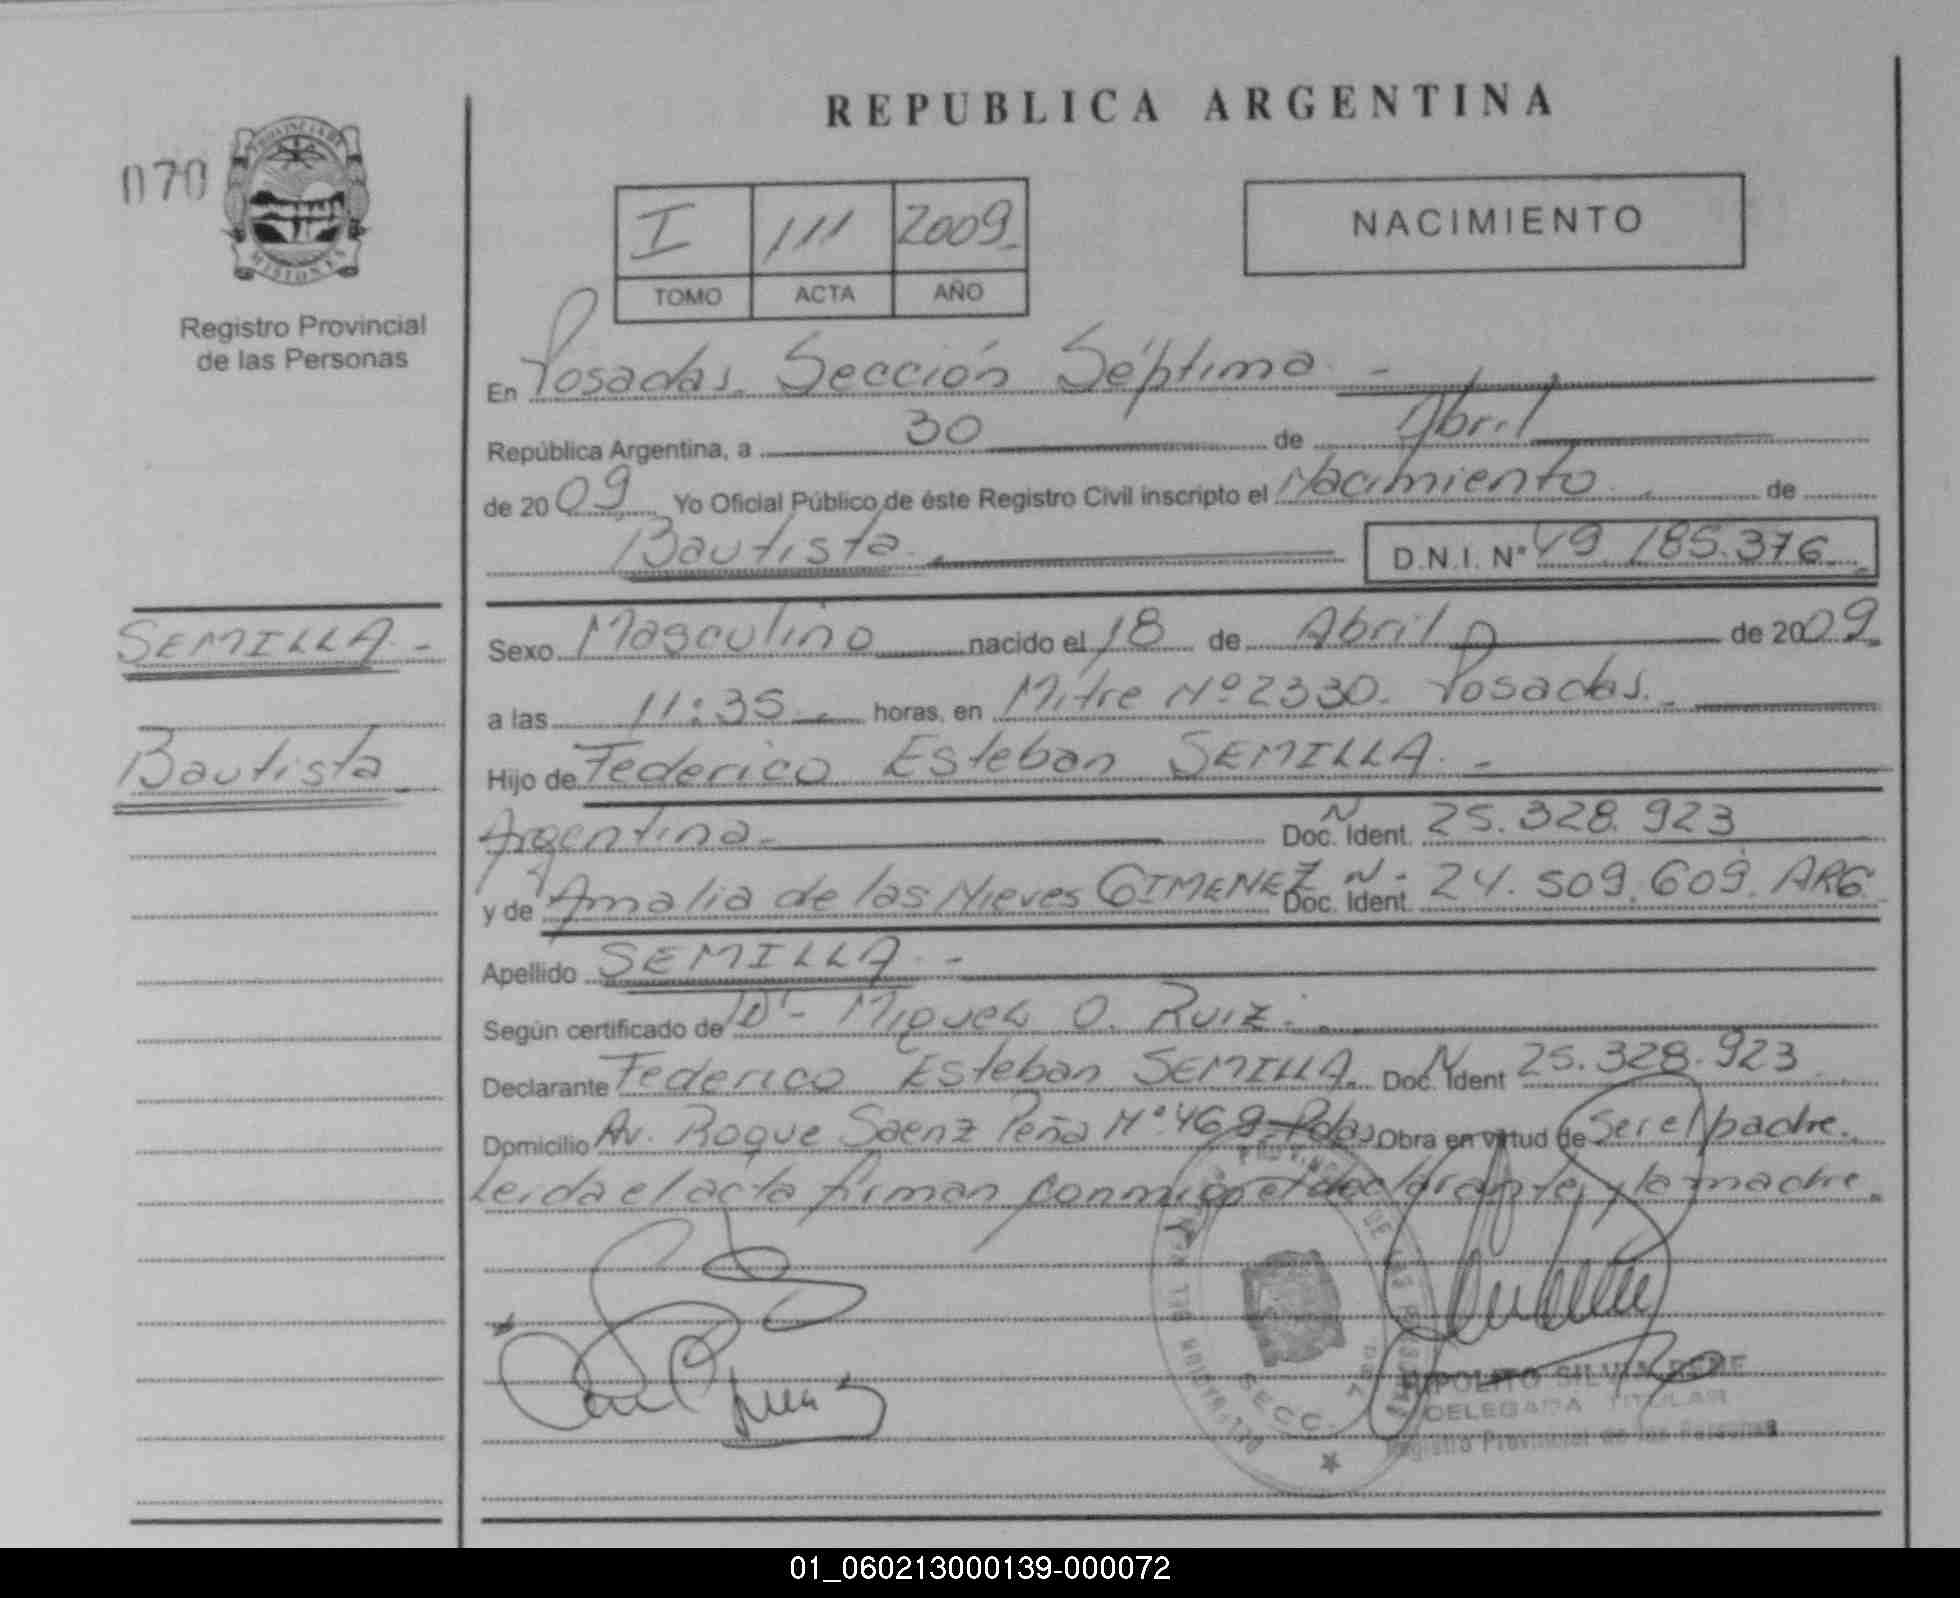 REPUBLICA ARGENTINA
070
PROVINCIA DE
MISIONES
Registro Provincial
de las Personas
I 111 2009
TOMO ACTA AÑO
NACIMIENTO
En Posadas Sección Séptima
República Argentina, a 30 de Abril
de 2009 Yo Oficial Público de éste Registro Civil inscripto el Nacimiento de
Bautista D.N.I. N° 49.185.376
SEMILLA
Bautista
Sexo Masculino nacido el 18 de Abril de 2009
a las 11:35 horas, en Mitre Nº 2330. Posadas.
Hijo de Federico Esteban SEMILLA.
Argentina Doc. Ident. N 25.328.923
y de Amalia de las Nieves GIMENEZ Doc. Ident. N 24.509.609. ARG
Apellido SEMILLA
Según certificado de Dr. Miguel O. Ruiz.
Declarante Federico Esteban SEMILLA. Doc. Ident N 25.328.923
Domicilio Av. Roque Saenz Peña Nº 469 Pdas Obra en virtud de ser el padre.
Leida el acta firman conmigo el declarante y la madre.
SECC.
HIPOLITO SILVIA RENE
DELEGADA TITULAR
Registro Provincial de las Personas
01_060213000139-000072